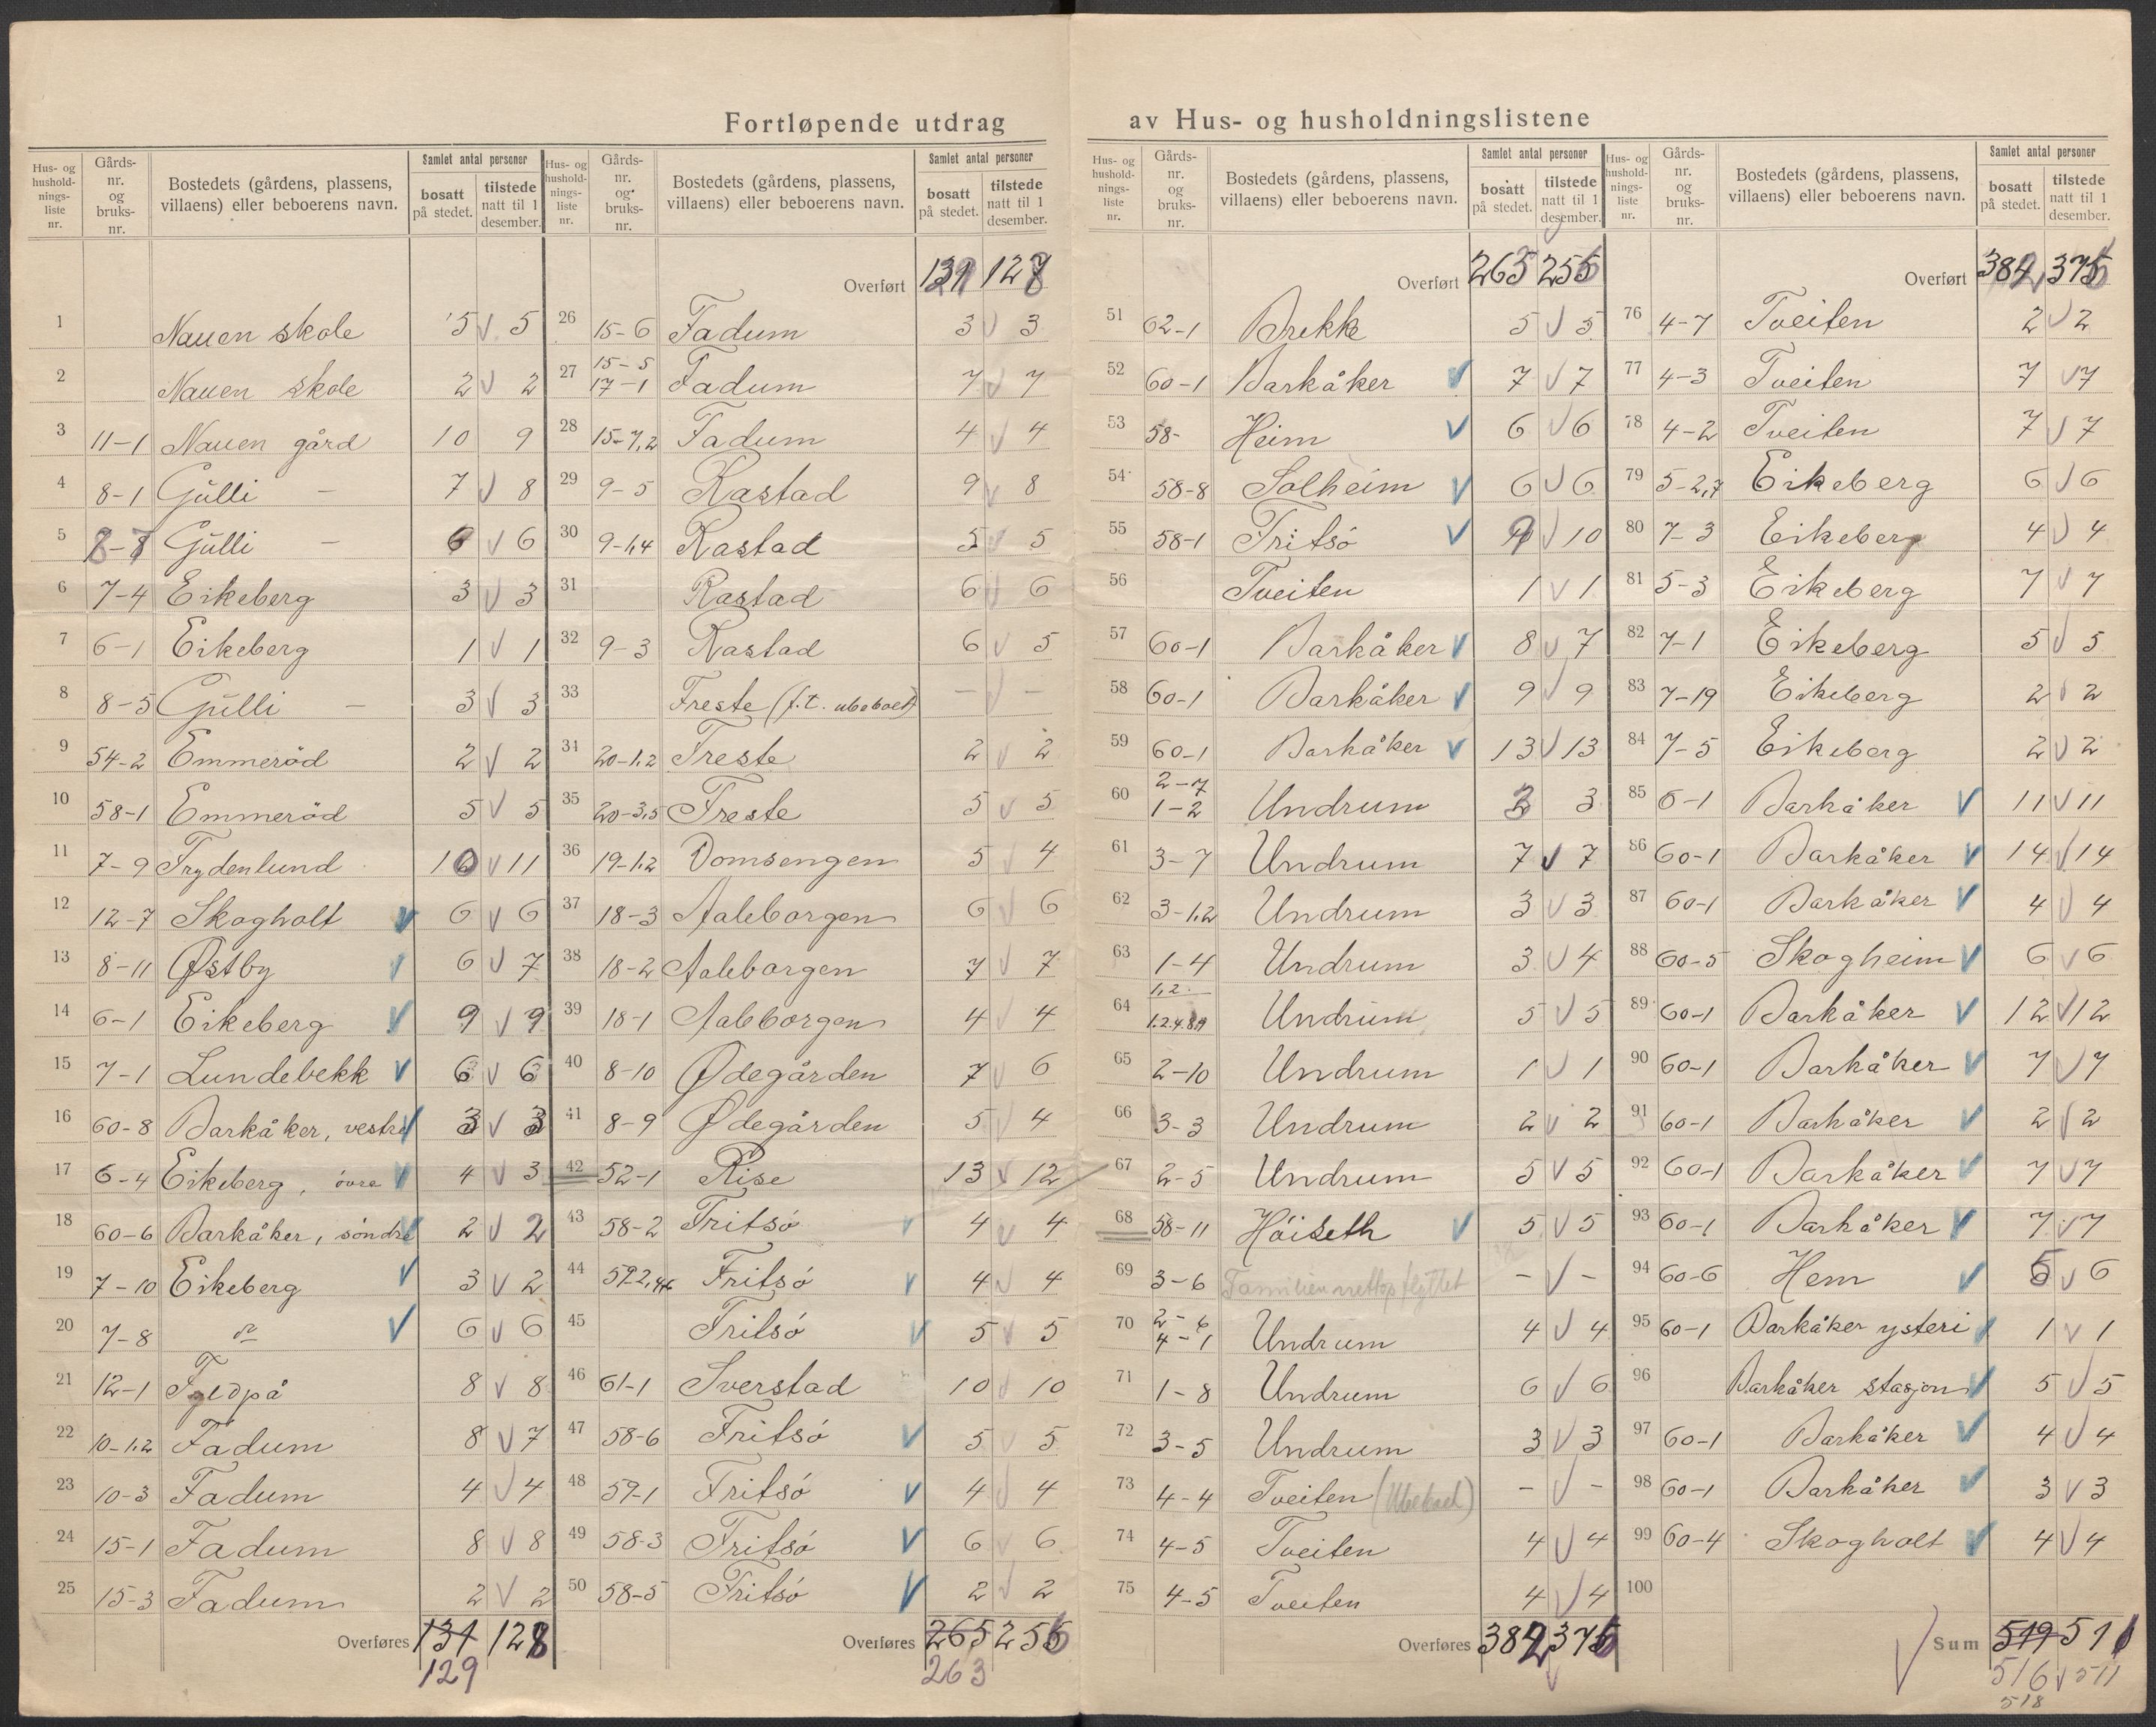 Fortløpende utdrag av Hus- og husholdningslistene
Hus- og husholdnings-liste nr. | Gårds-nr. og bruks-nr. | Bostedets (gårdens, plassens, villaens) eller beboerens navn. | Samlet antal personer | bosatt på stedet. | tilstede natt til 1 desember.
1 Nauen skole 5 5
2 Nauen skole 2 2
3 11-1 Nauen gård 10 9
4 8-1 Gülli - 7 8
5 8-7 Gülli - 6 6
6 7-4 Eikeberg 3 3
7 6-1 Eikeberg 1 1
8 8-5 Gülli - 3 3
9 54-2 Emmeröd 2 2
10 58-1 Emmeröd 5 5
11 7-9 Frydenlund 10 11
12 12-7 Skogholt 6 6
13 8-11 Østby 6 7
14 6-1 Eikeberg 9 9
15 7-1 Lundebekk 6 6
16 60-8 Barkåker, vestre 3 3
17 6-4 Eikeberg, övre 4 3
18 60-6 Barkåker, söndre 2 2
19 7-10 Eikeberg 3 2
20 7-8 do 6 6
21 12-1 Fyldpå 8 8
22 10-1,2 Fadum 8 7
23 10-3 Fadum 4 4
24 15-1 Fadum 8 8
25 15-3 Fadum 2 2
Overføres 131 128
129
Hus- og husholdnings-liste nr. | Gårds-nr. og bruks-nr. | Bostedets (gårdens, plassens, villaens) eller beboerens navn. | Samlet antal personer | bosatt på stedet. | tilstede natt til 1 desember.
Overført 131 128
26 15-6 Fadum 3 3
27 15-5 17-1 Fadum 7 7
28 15-7,2 Fadum 4 4
29 9-5 Rastad 9 8
30 9-1,4 Rastad 5 5
31 Rastad 6 6
32 9-3 Rastad 6 5
33 Freste (f.t. ubeboet) - -
34 20-1,2 Freste 2 2
35 20-3,5 Freste 5 5
36 19-1,2 Domsengen 5 4
37 18-3 Aaleborgen 6 6
38 18-2 Aaleborgen 7 7
39 18-1 Aaleborgen 4 4
40 8-10 Ødegården 7 6
41 8-9 Ødegården 5 4
42 52-1 Rise 13 12
43 58-2 Fritsö 4 4
44 Fritsö 4 4
45 Fritsö 5 5
46 61-1 Sverstad 10 10
47 58-6 Fritsö 5 5
48 59-1 Fritsö 4 4
49 58-3 Fritsö 6 6
50 58-5 Fritsö 2 2
Overføres 265 256
263
Hus- og husholdnings-liste nr. | Gårds-nr. og bruks-nr. | Bostedets (gårdens, plassens, villaens) eller beboerens navn. | Samlet antal personer | bosatt på stedet. | tilstede natt til 1 desember.
Overført 263 256
51 62-1 Brekke 5 5
52 60-1 Barkåker 7 7
53 58- Heim 6 6
54 58-8 Solheim 6 6
55 58-1 Fritsö 9 10
56 Tveiten 1 1
57 60-1 Barkåker 8 7
58 60-1 Barkåker 9 9
59 60-1 Barkåker 13 13
60 2-7 1-2 Undrum 3 3
61 3-7 Undrum 7 7
62 3-1,2 Undrum 3 3
63 1-4 Undrum 3 4
64 Undrum 5 5
65 2-10 Undrum 1 1
66 3-3 Undrum 2 2
67 2-5 Undrum 5 5
68 58-11 Höiseth 5 5
69 3-6 Familien nettop flyttet - -
70 2-6 4-1 Undrum 4 4
71 1-8 Undrum 6 6
72 3-5 Undrum 3 3
73 4-4 Tveiten (Ubeboet) - -
74 4-5 Tveiten 4 4
75 4-5 Tveiten 4 4
Overføres 382 376
Hus- og husholdnings-liste nr. | Gårds-nr. og bruks-nr. | Bostedets (gårdens, plassens, villaens) eller beboerens navn. | Samlet antal personer | bosatt på stedet. | tilstede natt til 1 desember.
Overført 382 376
76 4-7 Tveiten 2 2
77 4-3 Tveiten 7 7
78 4-2 Tveiten 7 7
79 5-2,7 Eikeberg 6 6
80 7-3 Eikeberg 4 4
81 5-3 Eikeberg 7 7
82 7-1 Eikeberg 5 5
83 7-19 Eikeberg 2 2
84 7-5 Eikeberg 2 2
85 6-1 Barkåker 11 11
86 60-1 Barkåker 14 14
87 60-1 Barkåker 4 4
88 60-5 Skogheim 6 6
89 60-1 Barkåker 12 12
90 60-1 Barkåker 7 7
91 60-1 Barkåker 2 2
92 60-1 Barkåker 7 7
93 60-1 Barkåker 7 7
94 60-6 Hem 5 6
95 60-1 Barkåker ysteri 1 1
96 Barkåker stasjon 5 5
97 60-1 Barkåker 4 4
98 60-1 Barkåker 3 3
99 60-4 Skogholt 4 4
100
Sum 519 511
516 511
518